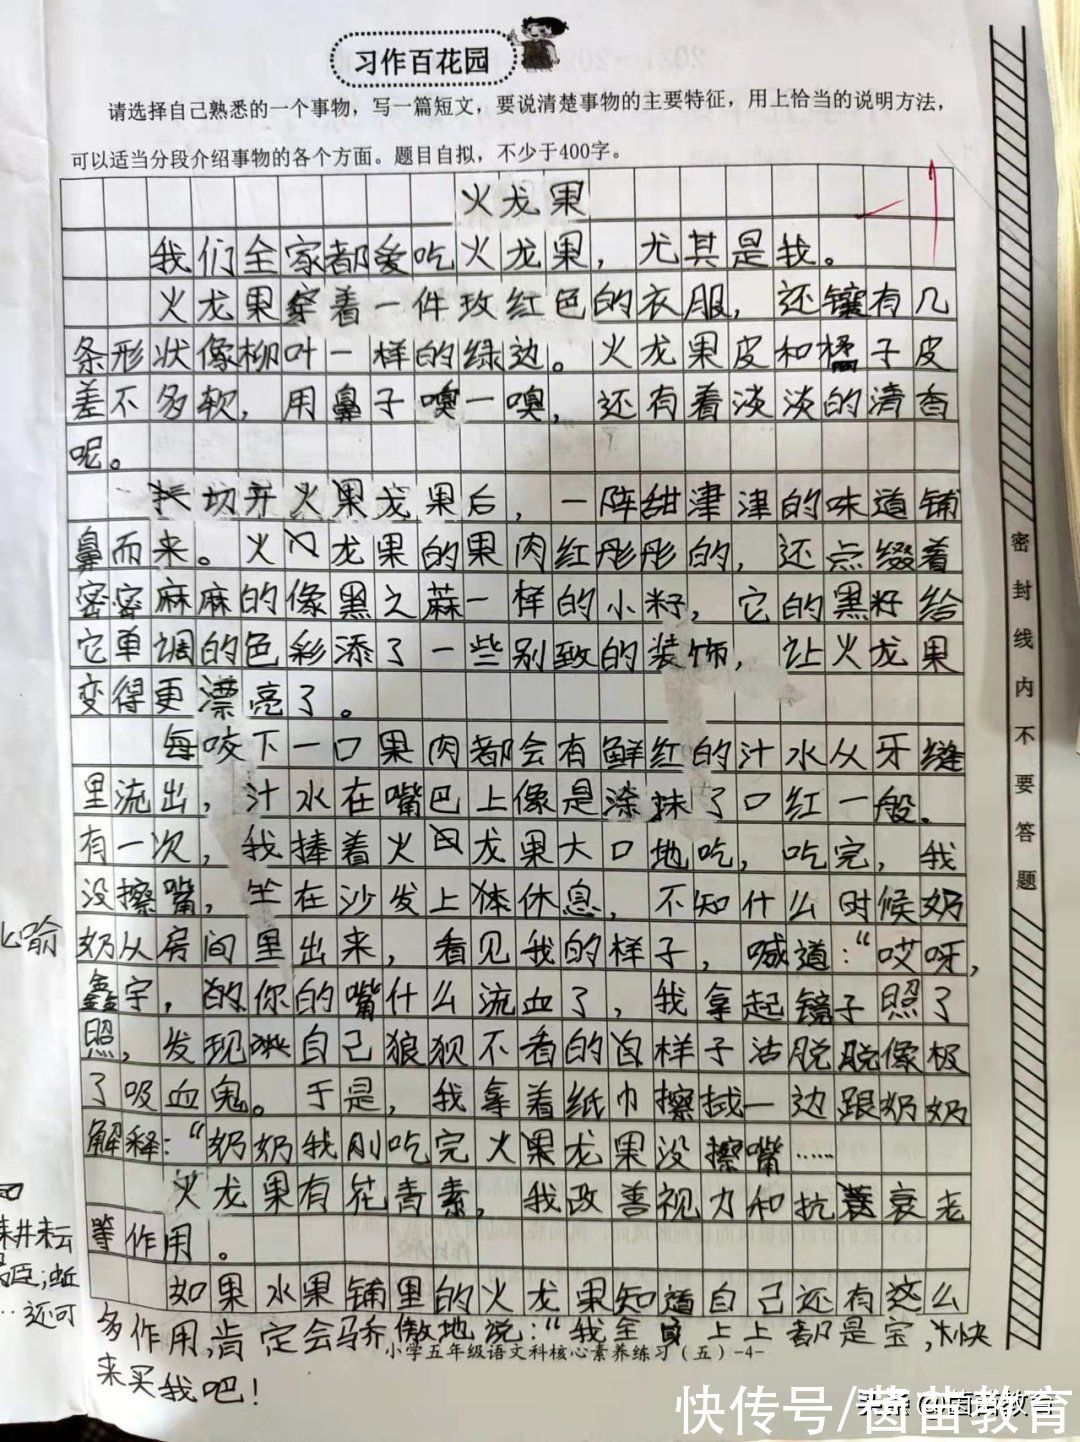 习作百花园
请选择自己熟悉的一个事物，写一篇短文，要说清楚事物的主要特征，用上恰当的说明方法，
可以适当分段介绍事物的各个方面。题目自拟，不少于400字。
火龙果
我们全家都爱吃火龙果，尤其是我。
火龙果穿着一件玫红色的衣服，还镶有几
条形状像柳叶一样的绿边。火龙果皮和橘子皮
差不多软，用鼻子嗅一嗅，还有着淡淡的清香
呢。
切开火果龙果后，一阵甜津津的味道铺
鼻而来。火龙果的果肉红彤彤的，还点缀着
密密麻麻的像黑之蔴一样的小籽，它的黑籽给
它单调的色彩添了一些别致的装饰，让火龙果
变得更漂亮了。
每咬下一口果肉都会有鲜红的汁水从牙缝
里流出，汁水在嘴巴上像是涂抹了口红一般。
有一次，我捧着火龙果大口地吃，吃完，我
没擦嘴，坐在沙发上体休息，不知什么时候奶
奶从房间里出来，看见我的样子，喊道：“哎呀，
鑫宇，你的嘴什么流血了，我拿起镜子照了
照，发现自己狼狈不看的样子活脱脱像极
了吸血鬼。于是，我拿着纸巾擦拭一边跟奶奶
解释：“奶奶我刚吃完火果龙果没擦嘴……
火龙果有花青素，我改善视力和抗衰老
等作用。
如果水果铺里的火龙果知道自己还有这么
多作用，肯定会骄傲地说：“我全身上上都是宝，快
来买我吧！
小学五年级语文科核心素养练习（五）-4-
密封线内不要答题
比喻
还可
头条 @茵苗教育
快传号/茵苗教育